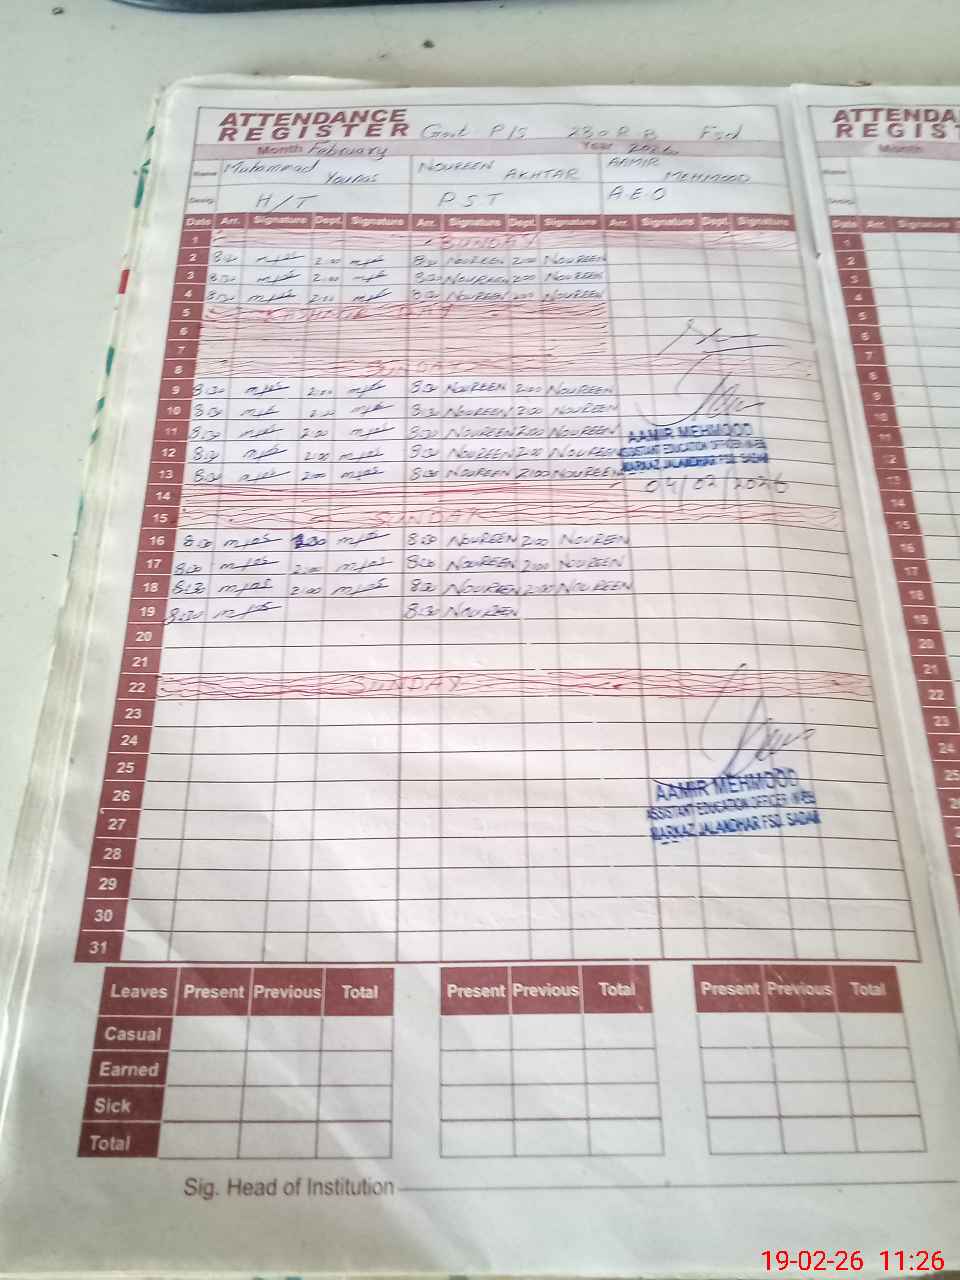 ATTENDANCE REGISTER Govt P/S 230 R.B Fsd
Month February Year 2026
Name Muhammad Younas NOUREEN AKHTAR AAMIR MEHMOOD
Desig. H/T PST A.E.O
Date Arr. Signature Dept. Signature Arr. Signature Dept. Signature Arr. Signature Dept. Signature
1 SUNDAY
2 8:30 2:00 8:30 NOUREEN 2:00 NOUREEN
3 8:30 2:00 8:30 NOUREEN 2:00 NOUREEN
4 8:30 2:00 8:30 NOUREEN 2:00 NOUREEN
5 KASHMIR DAY
6
7
8 SUNDAY
9 8:30 2:00 8:30 NOUREEN 2:00 NOUREEN
10 8:30 2:00 8:30 NOUREEN 2:00 NOUREEN
11 8:30 2:00 8:30 NOUREEN 2:00 NOUREEN
12 8:30 2:00 8:30 NOUREEN 2:00 NOUREEN
13 8:30 2:00 8:30 NOUREEN 2:00 NOUREEN
AAMIR MEHMOOD
ASSISTANT EDUCATION OFFICER
MARKAZ JALANDHAR FSD. SADAR
04/02/2026
14
15 SUNDAY
16 8:30 2:00 8:30 NOUREEN 2:00 NOUREEN
17 8:30 2:00 8:30 NOUREEN 2:00 NOUREEN
18 8:30 2:00 8:30 NOUREEN 2:00 NOUREEN
19 8:30 8:30 NOUREEN
20
21
22 SUNDAY
23
24
25
26
27
28
29
30
31
AAMIR MEHMOOD
ASSISTANT EDUCATION OFFICER
MARKAZ JALANDHAR FSD. SADAR
Leaves Present Previous Total Present Previous Total Present Previous Total
Casual
Earned
Sick
Total
Sig. Head of Institution
ATTENDA
REGIST
Month
Name
Desig.
Date Arr. Signature
1
2
3
4
5
6
7
8
9
10
11
12
13
14
15
16
17
18
19
20
21
22
23
24
25
19-02-26 11:26